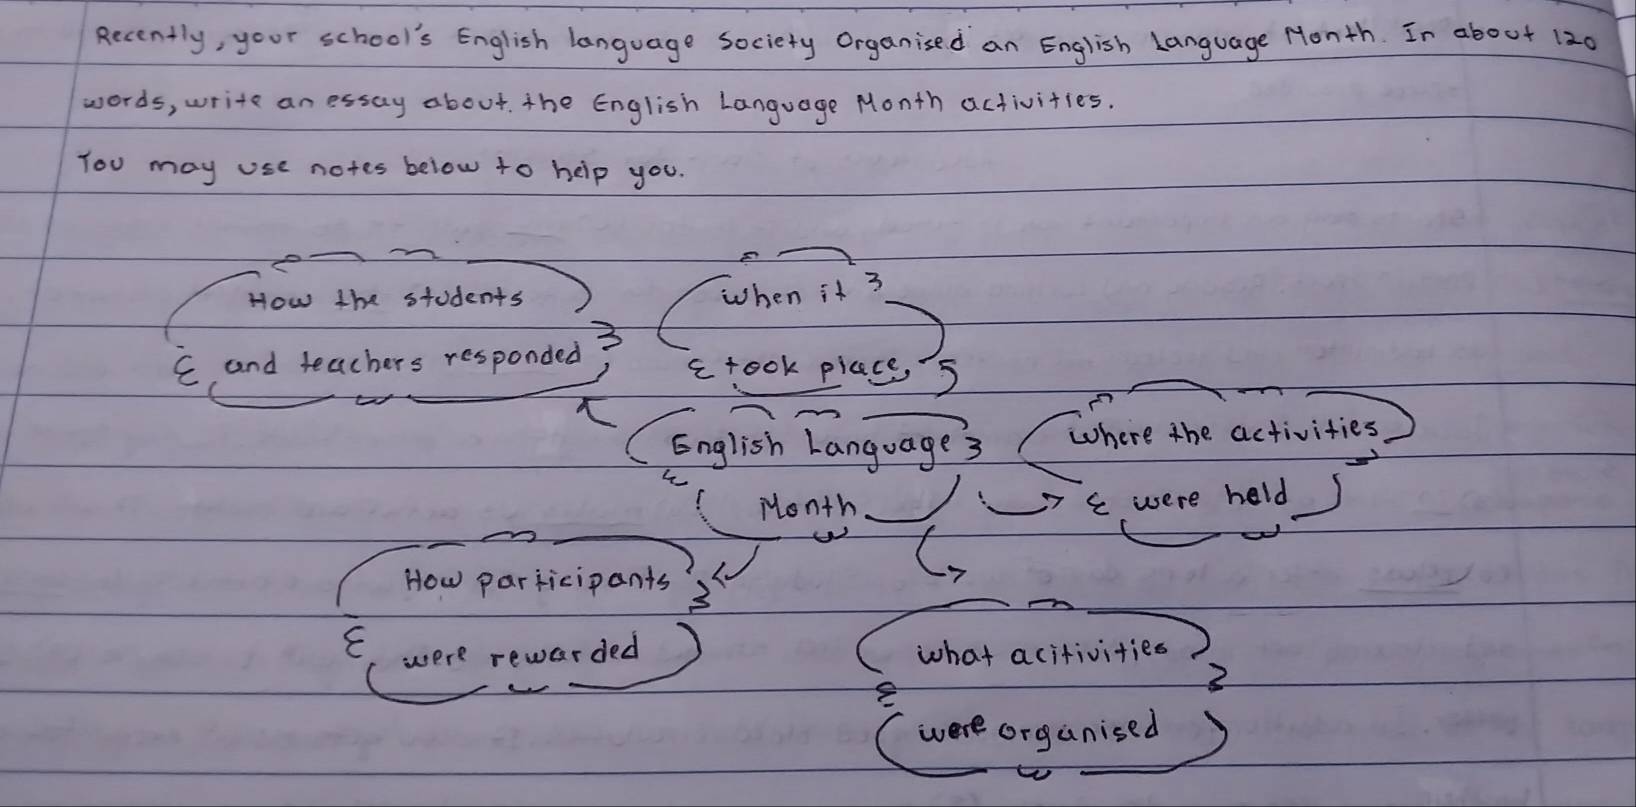 Recently, your school's English language Society Organised an English Language Month. In about 120
words, write an essay about the English Language Month activities.
You may use notes below to help you.
How the students
and teachers responded
When it
took place
English Language
Month
Where the activities
were held
How participants
were rewarded
what acitivities
were organised